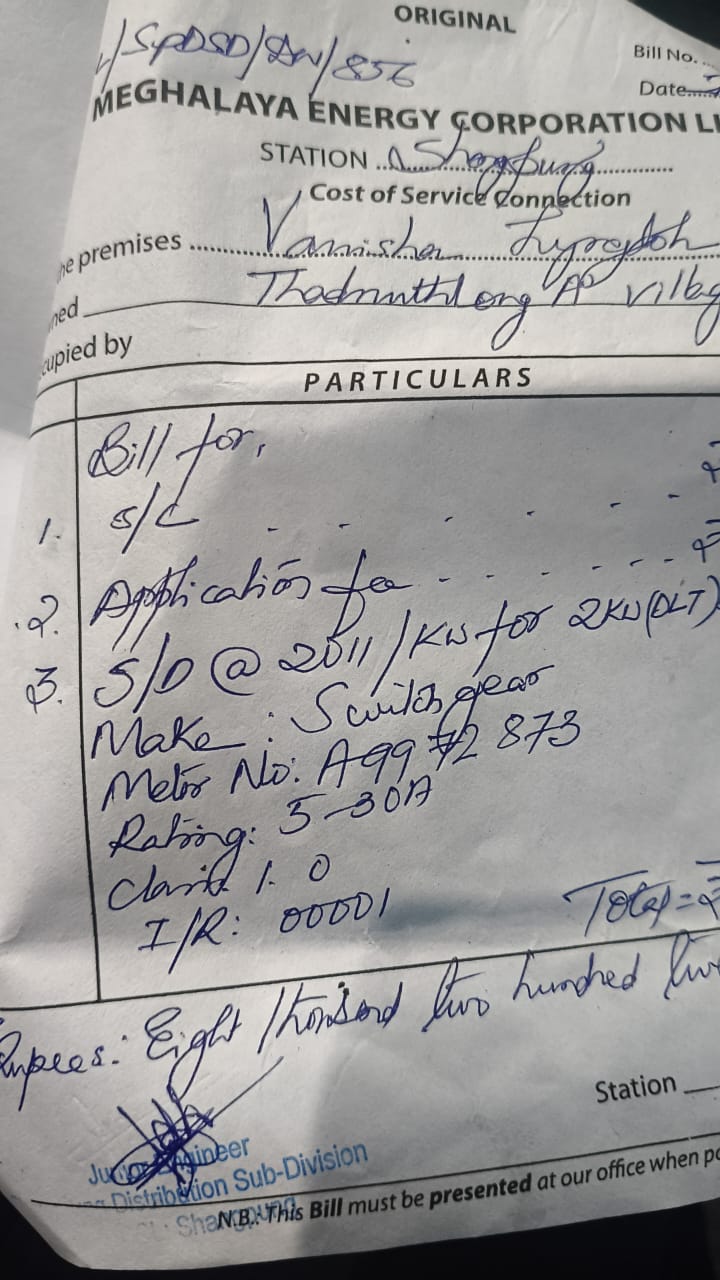 ORIGINAL
/SpDSD/AW/856
Bill No. ..
Date.....
MEGHALAYA ENERGY CORPORATION LI
STATION ...
Cost of Service Connection
he premises ........ Vannisha
ned Thadmuthlong AP Villag
cupied by
PARTICULARS
Bill for,
1. S/C - - - - - ₹
2. Application fee - - - - - - ₹
3. S/D @ 2011/KW for 2KW(DLT)
Make : Switchgear
Meter No: A99 72 873
Rating: 5-30A
Class 1.0
I/R: 00001
Total = ₹
Rupees: Eight thousand two hundred
Station
Junior Engineer
Distribution Sub-Division
N.B.: This Bill must be presented at our office when pa